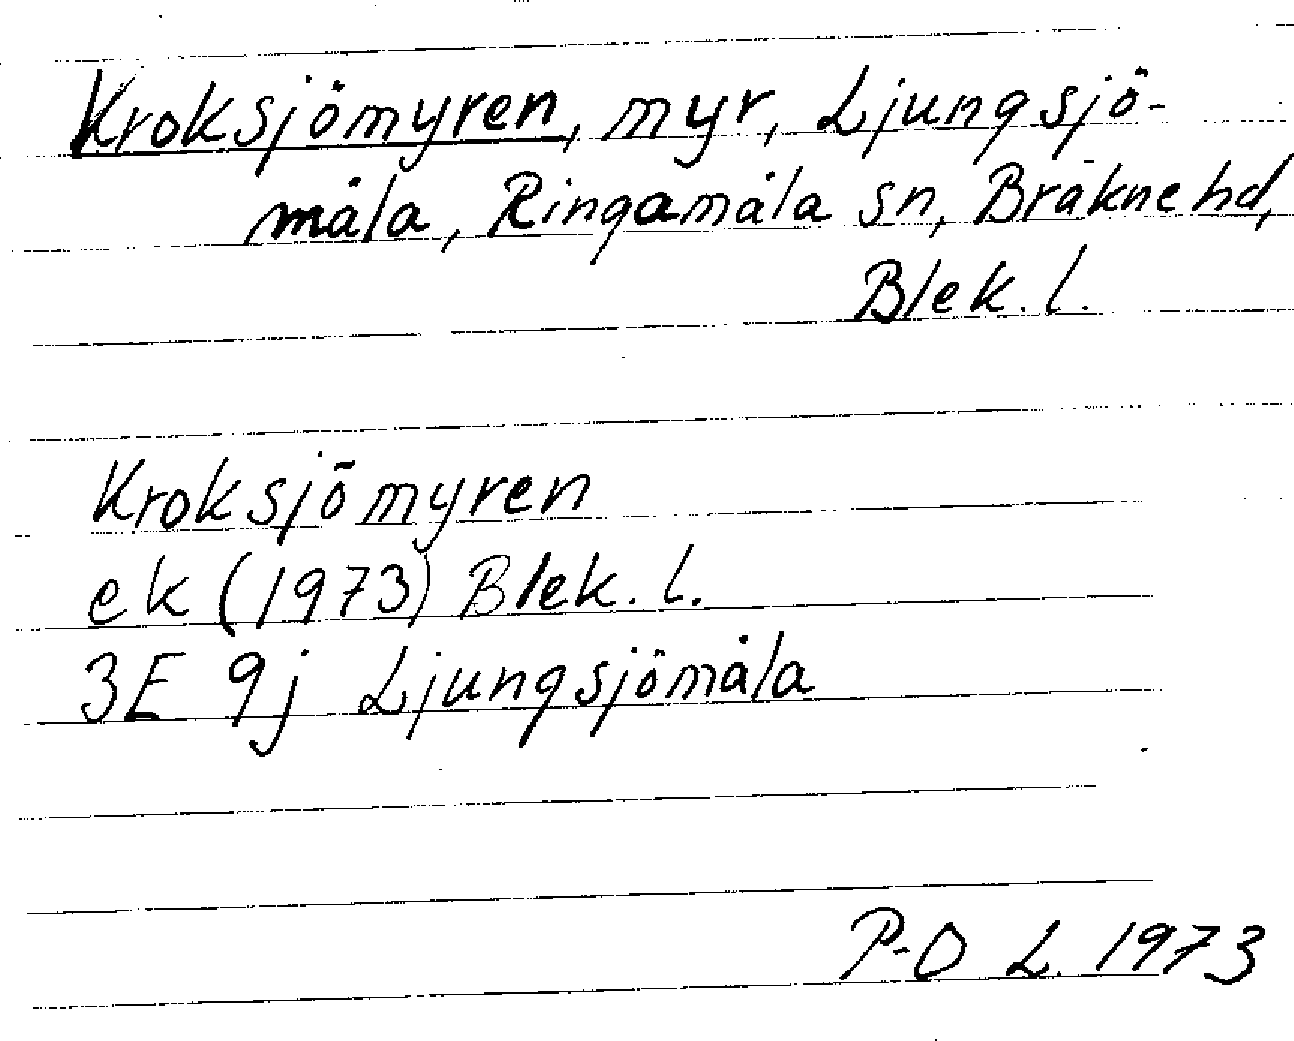 Kroksjömyren, myr, Ljungsjö-
måla, Ringamåla sn, Bräkne hd,
Blek. l.
Kroksjömyren
ek (1973) Blek. l.
3E 9j Ljungsjömåla
P-O L. 1973